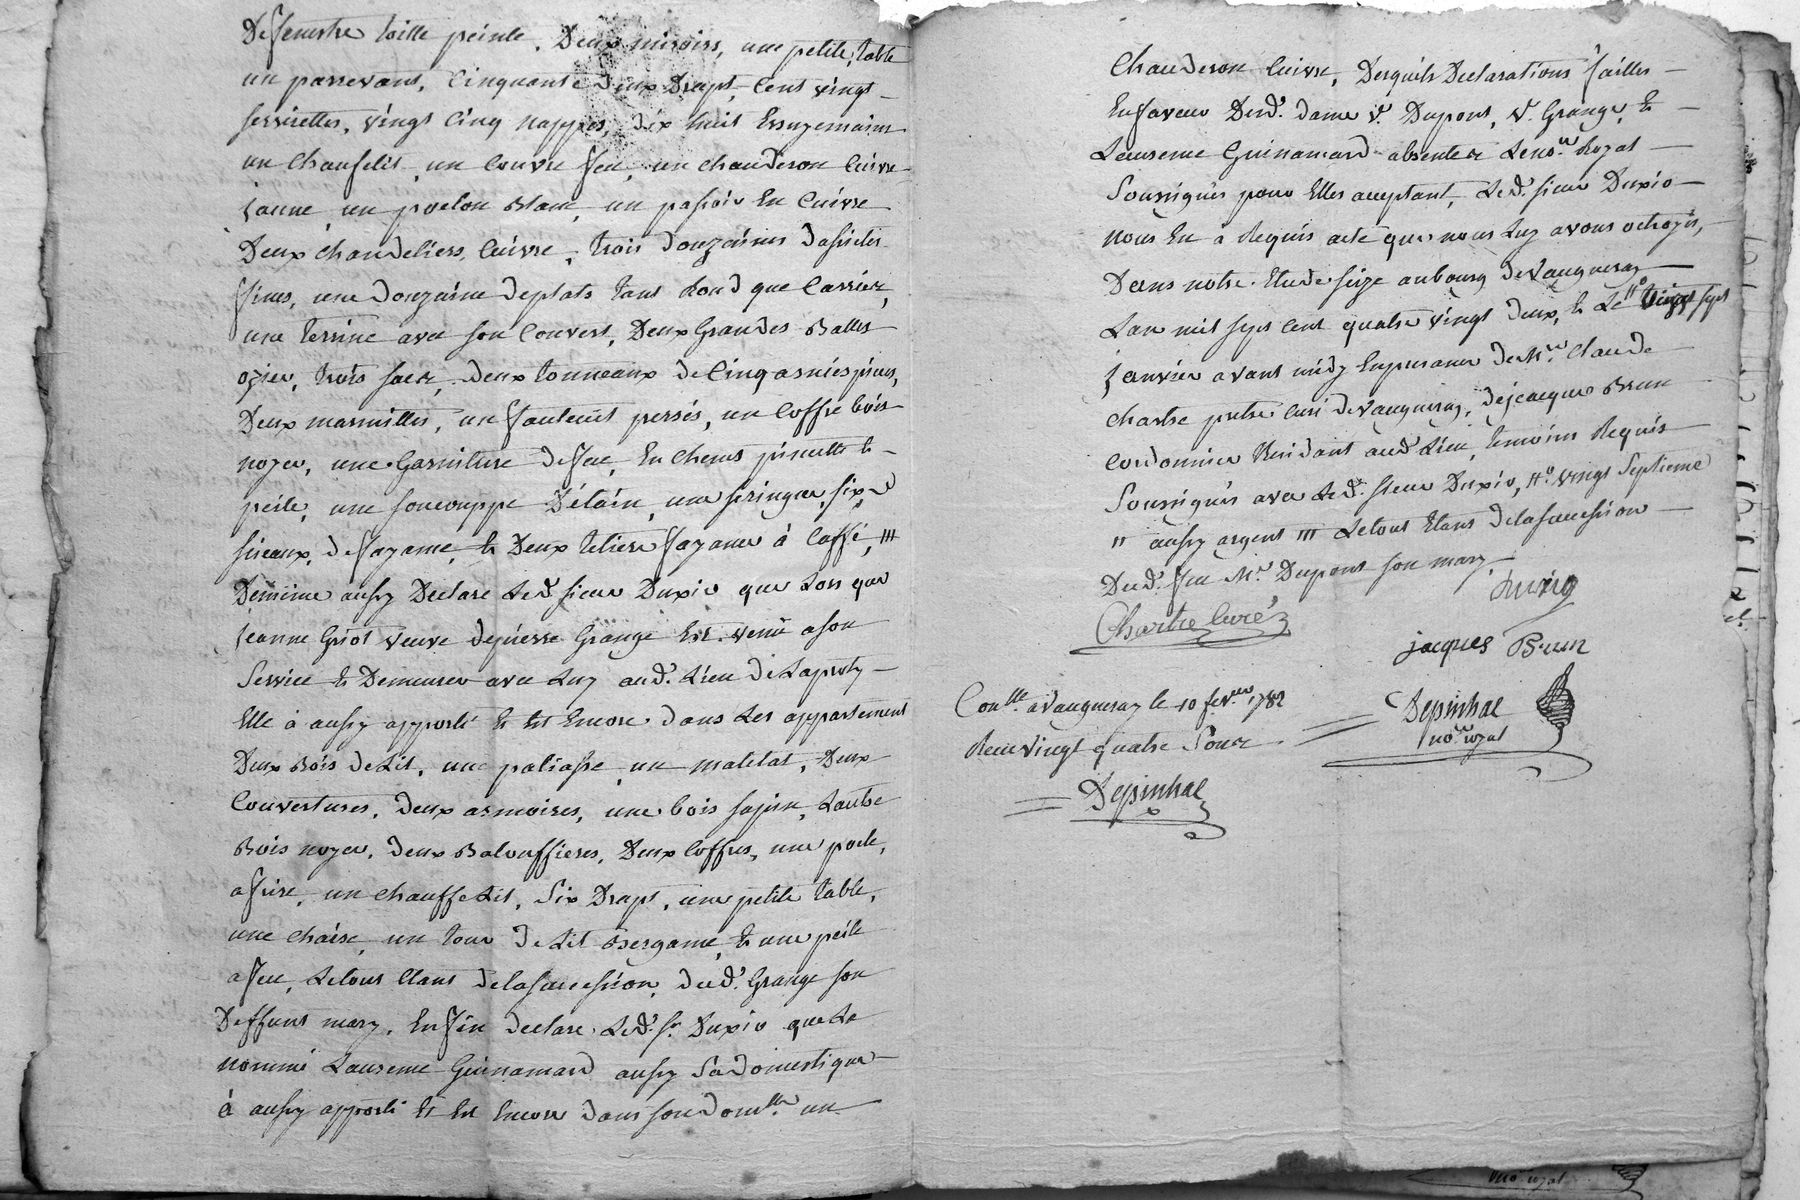 De fenestre toille peinte, Deux miroirs, une petite table
un passevant, Cinquante deux Draps, Cent vingt
serviettes, vingt Cinq nappes, dix huit Essuyemains
un Chaufelit, un Couvre feu, un chauderon Cuivre
jaune, un poelon Blanc, un passoir En Cuivre
Deux chandeliers, Cuivre, trois douzaines dassiettes
fines, une douzaine deplats tant Rond que Carrier,
une terrine avec son Couvert, Deux Grandes Balles
ozier, trois sacs, deux tonneaux de Cinq asnées pieces,
Deux marmittes, un fauteuil perssés, un Coffre bois
noyer, une Garniture De feu, En Chenets pincette et
pelle, une soucouppe D'étain, une seringue, six
siseaux, de fayance, et Deux tetiere fayance à Caffé, ///
Demême aussy Declare Led. sieur Duxio que Lors que
jeanne Griot veuve depierre Grange Est venüe ason
Service et Demeurer avec Luy aud. Lieu de Laproty
Elle à aussy apporté Et Est Encore dans Les appartement
Deux Bois deLit, une paliasse, un matelat, Deux
Couvertures, Deux armoires, une bois sapin, Lautre
Bois noyer, deux Balouffieres, Deux Coffres, une poele,
afrire, un chauffe Lit, Six Draps, une petite table,
une chaise, un tour de Lit Bergame, et une pelle
afeu, Letout Etant delasuccession, dud. Grange son
Deffunt mary. Enfin declare Led. Sr. Duxio que La
nommé Laurence Guinamard aussy Sadomestique
à aussy apporté Et Est Encore dans son domlle. un
Chauderon Cuivre, Desquels Declarations failles
Enfaveur Desd. dame Ve. Dupont, Ve. Grange, Et
Laurence Guinamard absentes Lenore. Royal
Soussignés pour Elles acceptant, Led. sieur Duxio
nous En à Requis acte que nous Luy avons octroyés,
Dans notre Etude size aubourg deVaugneray
Lan mil sept cent quatre vingt deux, Et Le # vingt sept
janvier avant midy Enpresence deMre. Claude
Chartre pretre Curé deVaugneray, dejacque Brun
Cordonnier Residant aud. Lieu, temoins Requis
Soussignés avec Led. sieur Duxio, #o. vingt Septieme
// aussy argent /// Letout Etant delasuccession
Dud. feu Mr. Dupont son mary
Duxio
Chartre Curé
jacques Brun
Conllé. avaugneray le 10 fevrier 1782
Recu vingt quatre Sous
Depinhac
nore. royal
Depinhac
nore. royal